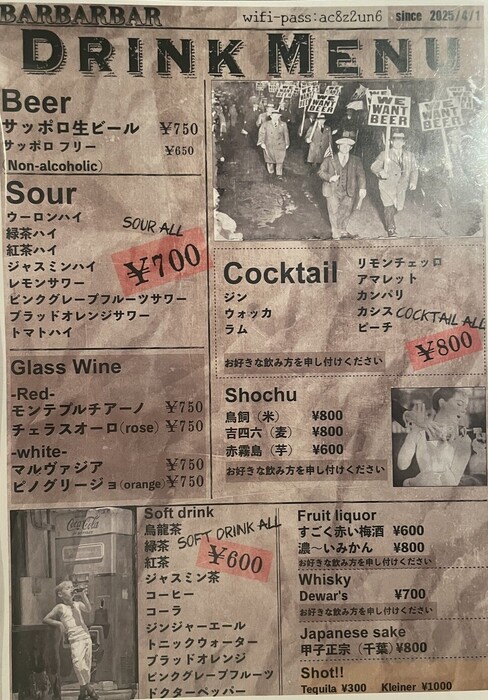 BARBARBAR
wifi-pass:ac8z2un6
since 2025/4/1
DRINK MENU
Beer
サッポロ生ビール ¥750
サッポロ フリー ¥650
(Non-alcoholic)
WE WANT BEER
WE WANT BEER
WE WANT BEER
Sour
SOUR ALL
¥700
ウーロンハイ
緑茶ハイ
紅茶ハイ
ジャスミンハイ
レモンサワー
ピンクグレープフルーツサワー
ブラッドオレンジサワー
トマトハイ
Cocktail
ジン
ウォッカ
ラム
リモンチェッロ
アマレット
カンパリ
カシス
ピーチ
COCKTAIL ALL
¥800
お好きな飲み方を申し付けください
Glass Wine
-Red-
モンテプルチアーノ ¥750
チェラスオーロ(rose) ¥750
-white-
マルヴァジア ¥750
ピノグリージョ(orange) ¥750
Shochu
鳥飼（米） ¥800
吉四六（麦） ¥800
赤霧島（芋） ¥600
お好きな飲み方を申し付けください
Coca-Cola
Soft drink
SOFT DRINK ALL
¥600
烏龍茶
緑茶
紅茶
ジャスミン茶
コーヒー
コーラ
ジンジャーエール
トニックウォーター
ブラッドオレンジ
ピンクグレープフルーツ
ドクターペッパー
Fruit liquor
すごく赤い梅酒 ¥600
濃〜いみかん ¥800
お好きな飲み方を申し付けください
Whisky
Dewar's ¥700
お好きな飲み方を申し付けください
Japanese sake
甲子正宗（千葉）¥800
Shot!!
Tequila ¥300 Kleiner ¥1000